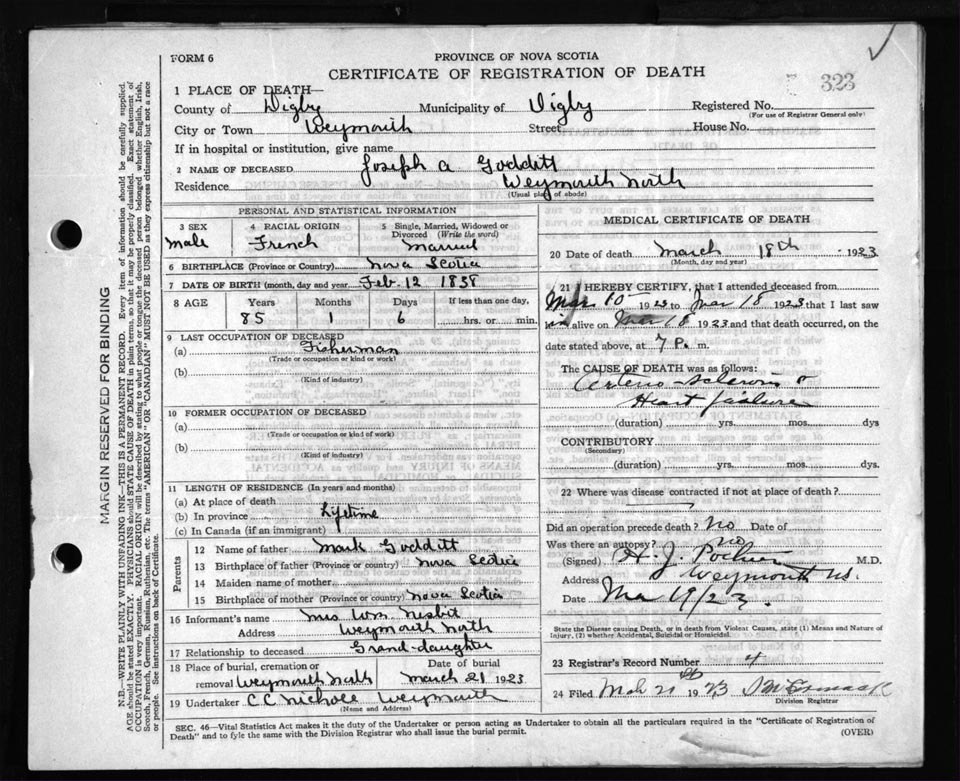 FORM 6
PROVINCE OF NOVA SCOTIA
CERTIFICATE OF REGISTRATION OF DEATH
323
1 PLACE OF DEATH—
County of Digby Municipality of Digby Registered No.
(For use of Registrar General only)
City or Town Weymouth Street House No.
If in hospital or institution, give name
2 NAME OF DECEASED Joseph A Godditt
Residence Weymouth North
(Usual place of abode)
PERSONAL AND STATISTICAL INFORMATION
3 SEX Male
4 RACIAL ORIGIN French
5 Single, Married, Widowed or Divorced (Write the word) Married
6 BIRTHPLACE (Province or Country) Nova Scotia
7 DATE OF BIRTH (month, day and year) Feb. 12 1838
8 AGE Years Months Days If less than one day,
85 1 6 hrs. or min.
9 LAST OCCUPATION OF DECEASED
(a) Fisherman
(Trade or occupation or kind or work)
(b)
(Kind of industry)
10 FORMER OCCUPATION OF DECEASED
(a)
(Trade or occupation or kind of work)
(b)
(Kind of industry)
11 LENGTH OF RESIDENCE (In years and months)
(a) At place of death
(b) In province Lifetime
(c) In Canada (if an immigrant)
Parents
12 Name of father Mark Godditt
13 Birthplace of father (Province or country) Nova Scotia
14 Maiden name of mother
15 Birthplace of mother (Province or country) Nova Scotia
16 Informant's name Mrs Wm. Nisbit
Address Weymouth North
17 Relationship to deceased Grand-daughter
18 Place of burial, cremation or removal Weymouth North
Date of burial March 21 1923
19 Undertaker C.C. Nichole Weymouth
(Name and Address)
MEDICAL CERTIFICATE OF DEATH
20 Date of death March 18th 1923
(Month, day and year)
21 I HEREBY CERTIFY, that I attended deceased from
Mar 10 1923 to Mar 18 1923 that I last saw
alive on Mar 18 1923 and that death occurred, on
date stated above, at 7 P. m.
The CAUSE OF DEATH was as follows:
Arterio-sclerosis &
Heart failure
(duration) yrs. mos. dys
CONTRIBUTORY
(Secondary)
(duration) yrs. mos. dys.
22 Where was disease contracted if not at place of death?
Did an operation precede death? No Date of
Was there an autopsy? no
(Signed) H. J. M.D.
Address Weymouth NS.
Date Mar 19/23.
State the Disease causing Death, or in death from Violent Causes, state (1) Means and Nature of Injury, (2) whether Accidental, Suicidal or Homicidal.
23 Registrar's Record Number 4
24 Filed Mch 21 1923
Division Registrar
SEC. 46—Vital Statistics Act makes it the duty of the Undertaker or person acting as Undertaker to obtain all the particulars required in the "Certificate of Registration of
Death" and to fyle the same with the Division Registrar who shall issue the burial permit. (OVER)
MARGIN RESERVED FOR BINDING
N.B.—WRITE PLAINLY WITH UNFADING INK—THIS IS A PERMANENT RECORD. Every item of information should be carefully supplied.
AGE should be stated EXACTLY. PHYSICIANS should STATE CAUSE OF DEATH in plain terms, so that it may be properly classified. Exact statement of
OCCUPATION is very important. RACIAL ORIGIN will be described by stating to what people or tongue the deceased person belonged whether English, Irish,
Scotch, French, German, Russian, Ruthenian, etc. The terms "AMERICAN" or "CANADIAN" MUST NOT BE USED as they express citizenship but not a race
or people. See instructions on back of Certificate.